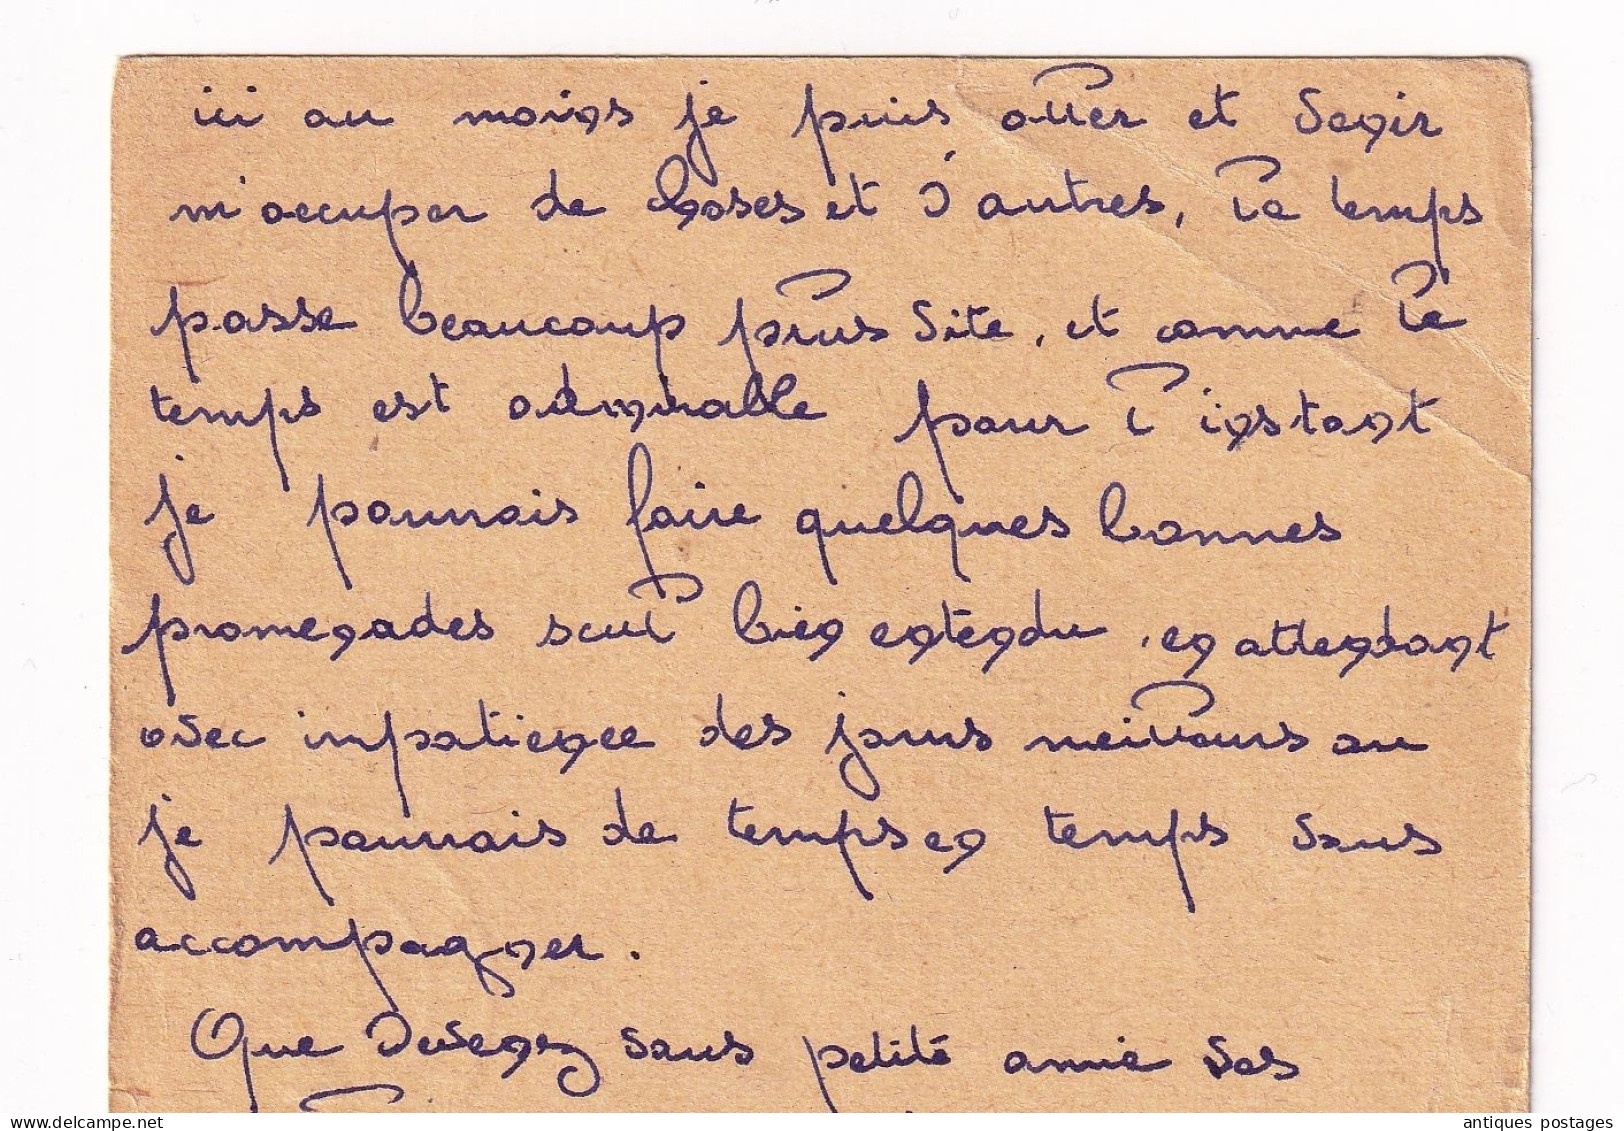 ici au moins je puis aller et venir
m'occuper de choses et d'autres, le temps
passe beaucoup plus vite, et comme le
temps est admirable pour l'instant
je pourrais faire quelques bonnes
promenades seul bien entendu, en attendant
avec impatience des jours meilleurs ou
je pourrais de temps en temps vous
accompagner.
Que devenez vous petite amie vos
antiques postages